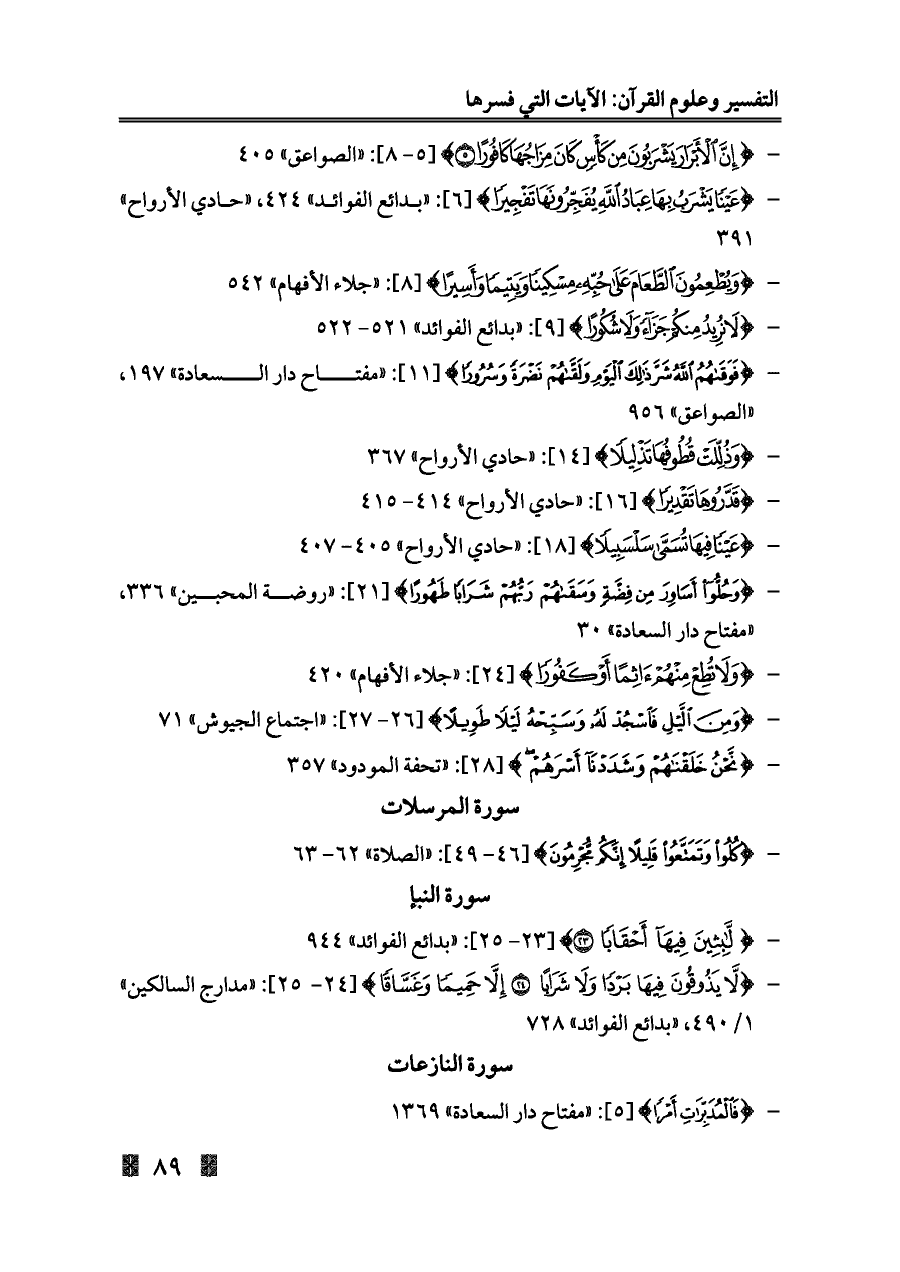 التفسير وعلوم القرآن: الآيات التي فسرها
- ﴿إِنَّ ٱلْأَبْرَارَ يَشْرَبُونَ مِن كَأْسٍ كَانَ مِزَاجُهَا كَافُورًا ۝٥﴾ [٥- ٨]: «الصواعق» ٤٠٥
- ﴿عَيْنًا يَشْرَبُ بِهَا عِبَادُ ٱللَّهِ يُفَجِّرُونَهَا تَفْجِيرًا﴾ [٦]: «بدائع الفوائد» ٤٢٤، «حادي الأرواح»
٣٩١
- ﴿وَيُطْعِمُونَ ٱلطَّعَامَ عَلَىٰ حُبِّهِۦ مِسْكِينًا وَيَتِيمًا وَأَسِيرًا﴾ [٨]: «جلاء الأفهام» ٥٤٢
- ﴿لَا نُرِيدُ مِنكُمْ جَزَآءً وَلَا شُكُورًا﴾ [٩]: «بدائع الفوائد» ٥٢١- ٥٢٢
- ﴿فَوَقَىٰهُمُ ٱللَّهُ شَرَّ ذَٰلِكَ ٱلْيَوْمِ وَلَقَّىٰهُمْ نَضْرَةً وَسُرُورًا﴾ [١١]: «مفتاح دار السعادة» ١٩٧،
«الصواعق» ٩٥٦
- ﴿وَذُلِّلَتْ قُطُوفُهَا تَذْلِيلًا﴾ [١٤]: «حادي الأرواح» ٣٦٧
- ﴿قَدَّرُوهَا تَقْدِيرًا﴾ [١٦]: «حادي الأرواح» ٤١٤- ٤١٥
- ﴿عَيْنًا فِيهَا تُسَمَّىٰ سَلْسَبِيلًا﴾ [١٨]: «حادي الأرواح» ٤٠٥- ٤٠٧
- ﴿وَحُلُّوٓا۟ أَسَاوِرَ مِن فِضَّةٍ وَسَقَىٰهُمْ رَبُّهُمْ شَرَابًا طَهُورًا﴾ [٢١]: «روضة المحبين» ٣٣٦،
«مفتاح دار السعادة» ٣٠
- ﴿وَلَا تُطِعْ مِنْهُمْ ءَاثِمًا أَوْ كَفُورًا﴾ [٢٤]: «جلاء الأفهام» ٤٢٠
- ﴿وَمِنَ ٱلَّيْلِ فَٱسْجُدْ لَهُۥ وَسَبِّحْهُ لَيْلًا طَوِيلًا﴾ [٢٦- ٢٧]: «اجتماع الجيوش» ٧١
- ﴿نَّحْنُ خَلَقْنَٰهُمْ وَشَدَدْنَآ أَسْرَهُمْ ۖ﴾ [٢٨]: «تحفة المودود» ٣٥٧
سورة المرسلات
- ﴿كُلُوا۟ وَتَمَتَّعُوا۟ قَلِيلًا إِنَّكُم مُّجْرِمُونَ﴾ [٤٦- ٤٩]: «الصلاة» ٦٢- ٦٣
سورة النبإ
- ﴿لَّٰبِثِينَ فِيهَآ أَحْقَابًا ۝٢٣﴾ [٢٣- ٢٥]: «بدائع الفوائد» ٩٤٤
- ﴿لَّا يَذُوقُونَ فِيهَا بَرْدًا وَلَا شَرَابًا ۝٢٤ إِلَّا حَمِيمًا وَغَسَّاقًا﴾ [٢٤- ٢٥]: «مدارج السالكين»
١/ ٤٩٠، «بدائع الفوائد» ٧٢٨
سورة النازعات
- ﴿فَٱلْمُدَبِّرَٰتِ أَمْرًا﴾ [٥]: «مفتاح دار السعادة» ١٣٦٩
٨٩